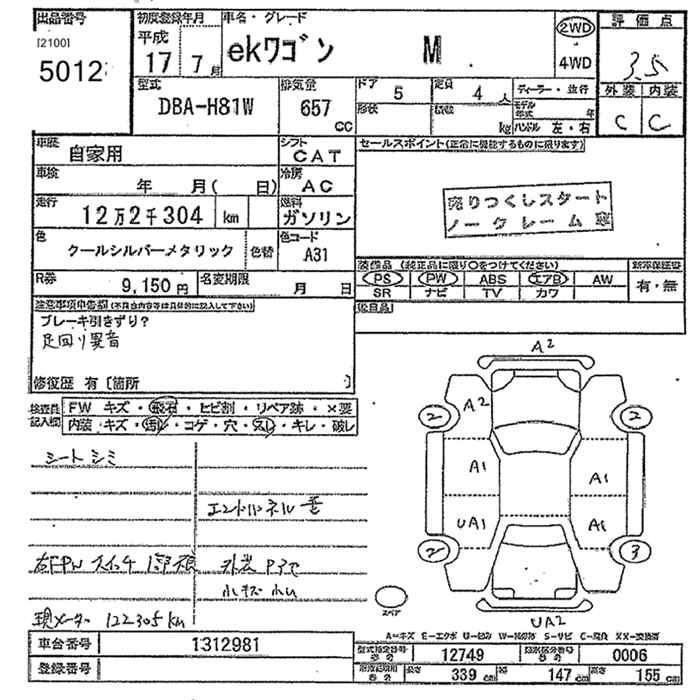 出品番号 初度登録年月 車名・グレード 評価点
[2100]
5012
平成 17 7月 ekワゴン M 2WD 4WD 3.5
型式 排気量 ドア 5 定員 4人 ディーラー・並行 外装 内装
DBA-H81W 657 CC 形状 積数 kg モデル年式 年 ハンドル 左・右 C C
車歴 自家用 シフト CAT セールスポイント(正常に機能するものに限ります)
車検 年 月( 日) 冷房 AC
売りつくしスタート
ノークレーム
走行 12万2千304 km 燃料 ガソリン
色 クールシルバーメタリック 色替 色コード A31
装備品(純正品に限り○をつけてください) 新車保証書
PS PW ABS エアB AW 有・無
SR ナビ TV カワ
R券 9,150円 名変期限 月 日
注意事項申告欄(不具合内容等は具体的に記入して下さい) 後日品
ブレーキ引きずり?
足回り異音
修復歴 有〔箇所 〕
検査員記入欄 FW キズ・飛石・ヒビ割・リペア跡・×要
内装・キズ・汚レ・コゲ・穴・スレ・キレ・破レ
A2
A2
2 2
A1 A1
UA1 A1
2 3
UA2
スペア
シートシミ
右FPWスイッチ1部損
外装
小キズ 小凹
現メーター 122305km
A=キズ E=エクボ U=凹み S=サビ XX=交換済
車台番号 1312981
登録番号
型式指定番号 12749 類別区分番号 0006
長さ 339cm 幅 147cm 高さ 155cm